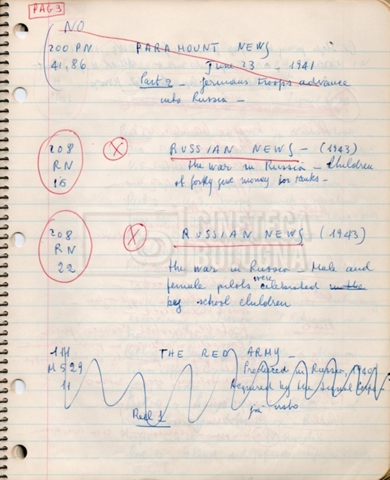 PAG 3
NO
200 PN PARAMOUNT NEWS
41,86 June 23 - 1941
Part 2 - Germans troops advance
into Russia -
208 X RUSSIAN NEWS - (1943)
RN the war in Russia - Children
16 of forty give money for tanks -
208 X RUSSIAN NEWS (1943)
RN
22 the war in Russia - Male and
female pilots were celebrated in the
by school children
111 THE RED ARMY -
M 529 Produced in Russia, 1940
11 Acquired by the Signal Corps
Reel 1 for
CINETECA
BOLOGNA